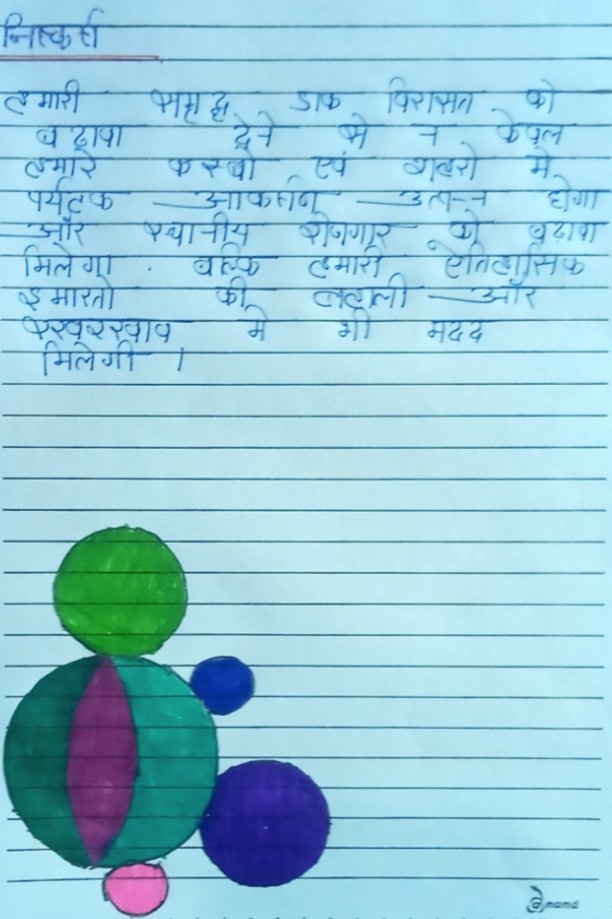 निष्कर्ष
हमारी समृद्ध डाक विरासत को
बढ़ावा देने से न केवल
हमारे कस्बो एवं शहरो मे
पर्यटक आकर्षण उत्पन्न होगा
और स्थानीय रोजगार को बढ़ावा
मिलेगा . बल्कि हमारी ऐतिहासिक
इमारतो की बहाली और
रखरखाव मे भी मदद
मिलेगी ।